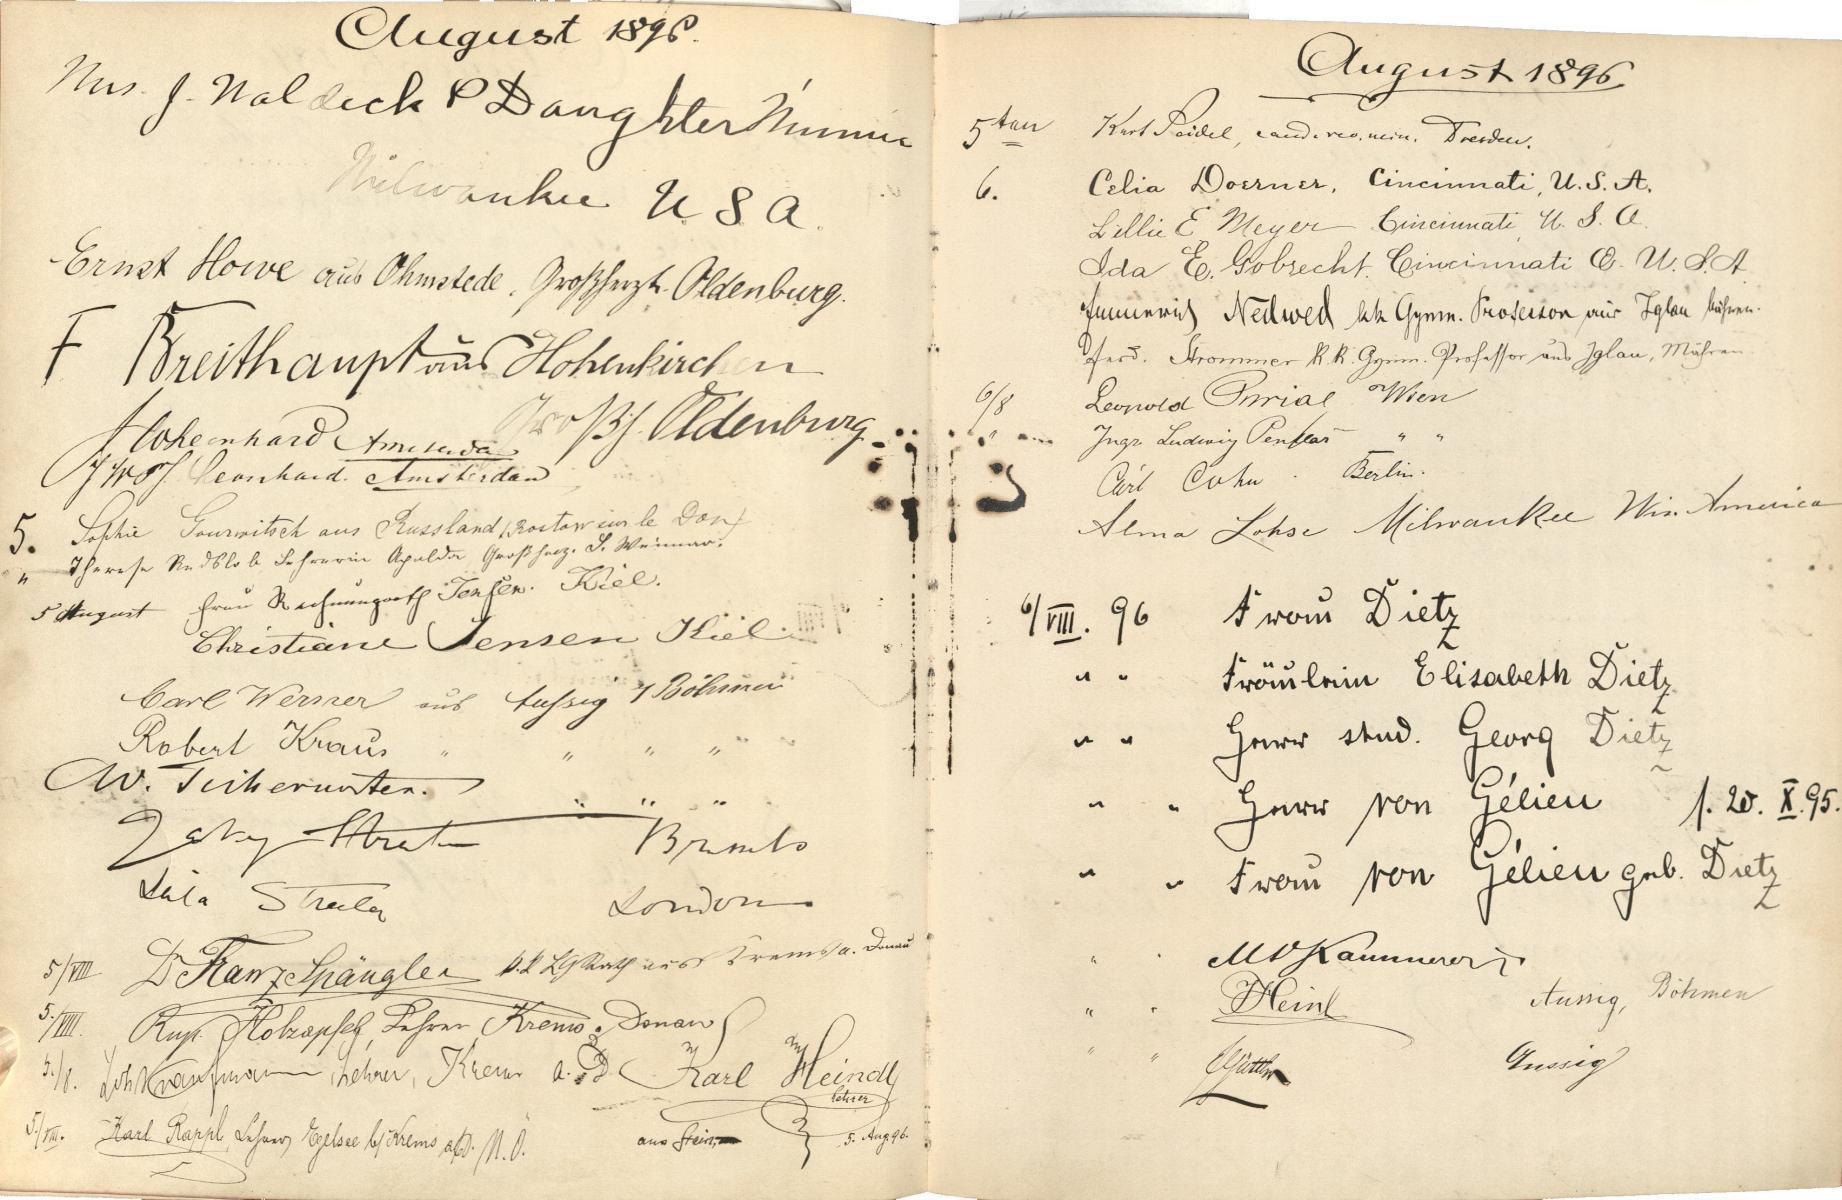 August 1896.
Mrs. J. Waldeck & Daughter Minnie
Milwaukee U S A.
Ernst Howe aus Ohmstede, Großherzt. Oldenburg.
F Breithaupt aus Hohenkirchen
Großh. Oldenburg.
Leonhard Amsterdam
Leonhard. Amsterdam
5. Sophie Gourwitsch aus Russland (Rostow sur le Don)
" Therese Lehrerin Apolda Großherz. S. Weimar.
5 August Frau Rechnungsrath Jensen. Kiel.
Christiane Jensen Kiel.
Carl Werner aus Aussig / Böhmen
Robert Kraus " " " "
W. " " "
London
5/VIII Dr Franz Spängler k.k. LGRath aus Krems a. Donau
5./VIII. Rup. Holzapfel, Lehrer Krems a. Donau
5./8. Joh Kaufmann, Lehrer, Krems a. D. Karl Heindl
Lehrer
5./VIII. Karl Rappl, Lehrer, Egelsee b/Krems a/D. N.Ö. aus Stein 5. Aug. 96.
August 1896
5ten Kurt Seidel, cand. rev. min. Dresden.
6. Celia Doerner, Cincinnati, U.S.A.
Lillie E Meyer Cincinnati, U.S.A.
Ida E. Gobrecht. Cincinnati O. U.S.A
Nedwed kk Gymn. Professor aus Iglau Mähren.
Ferd. Strommer k.k. Gymn. Professor aus Iglau, Mähren
6/8 Leopold Wien
" Ingr. Ludwig " "
Carl Cohn. Berlin.
Alma Lohse Milwaukee Wis. America
6/VIII. 96 Frau Dietz
" " Fräulein Elisabeth Dietz
" " Herr stud. Georg Dietz
" " Herr von Gélieu f. 20. X. 95.
" " Frau von Gélieu geb. Dietz
" " Kammerer
" " Heinl Aussig, Böhmen
" " Aussig